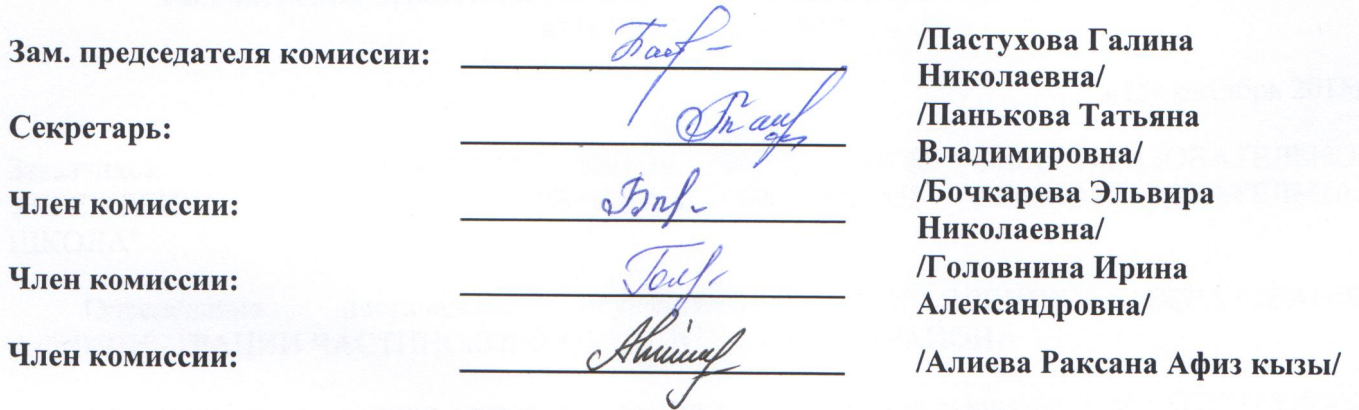 Зам. председателя комиссии: /Пастухова Галина
Николаевна/
Секретарь: /Панькова Татьяна
Владимировна/
Член комиссии: /Бочкарева Эльвира
Николаевна/
Член комиссии: /Головнина Ирина
Александровна/
Член комиссии: /Алиева Раксана Афиз кызы/